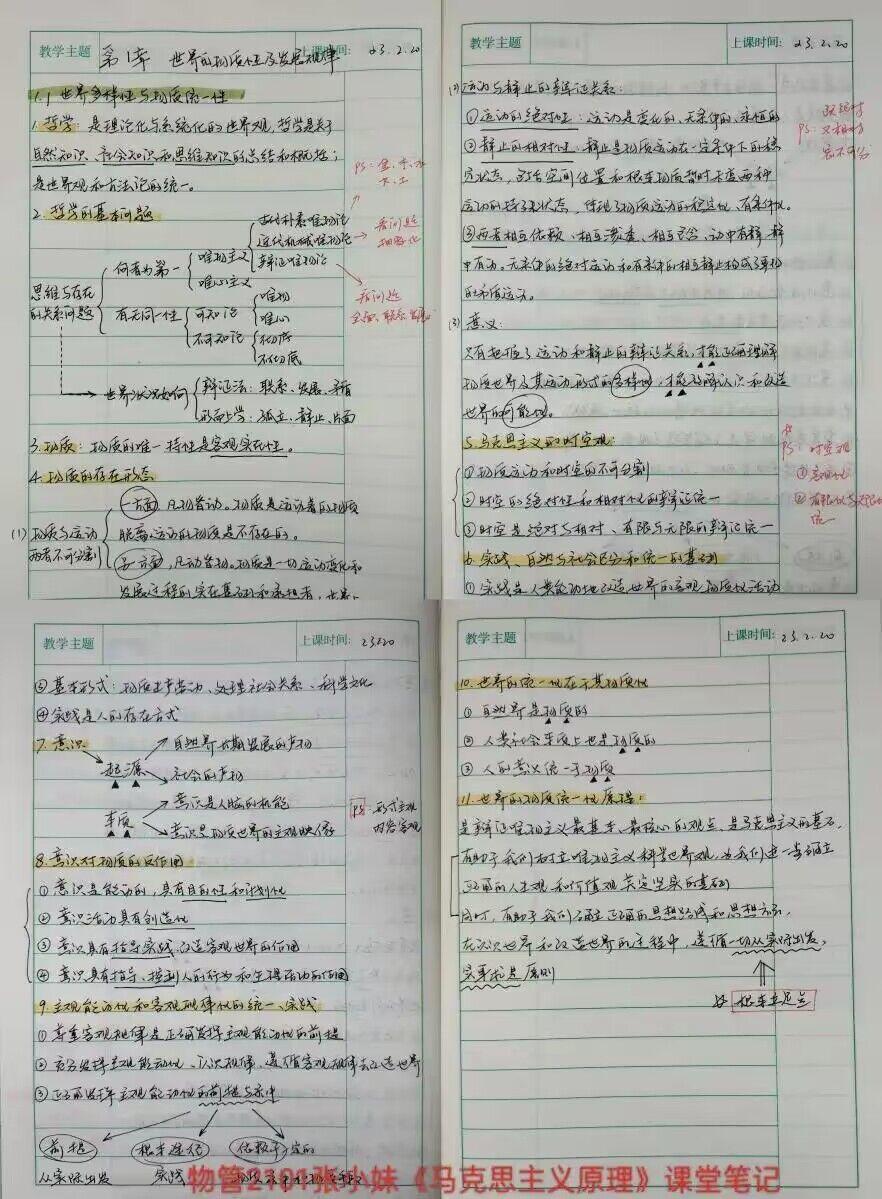 教学主题 第1章 世界的物质性及发展规律 上课时间: 23.2.20
1.1 世界多样性与物质统一性
1. 哲学: 是理论化与系统化的世界观, 哲学是关于
自然知识、社会知识和思维知识的总结和概括;
是世界观和方法论的统一。
PS: 金、木、水
火、土
2. 哲学的基本问题
思维与存在
的关系问题
何者为第一
唯物主义
古代朴素唯物论
近代机械唯物论
辩证唯物论
看问题
唯心主义
看问题
全面、联系、发展
有无同一性
可知论
唯物
唯心
不可知论
不彻底
世界状况如何
辩证法: 联系、发展、矛盾
形而上学: 孤立、静止、片面
3. 物质: 物质的唯一特性是客观实在性。
4. 物质的存在形态
(1) 物质与运动
两者不可分割
一方面, 凡物皆动。物质是运动着的物质
脱离运动的物质是不存在的。
另一方面, 凡动皆物。物质是一切运动变化和
发展过程的实在基础和承担者, 世界上
教学主题 上课时间: 23.2.20
(2) 运动与静止的辩证关系:
①运动的绝对性: 运动是变化的、无条件的、永恒的
②静止的相对性: 静止是物质运动在一定条件下的稳
定状态, 包括空间位置和根本性质暂时未变两种
运动的特殊状态, 体现了物质运动的稳定性、有条件性。
③两者相互依赖、相互渗透、相互包含, 动中有静, 静
中有动。无条件的绝对运动和有条件的相对静止构成了事物
的矛盾运动。
PS: 既绝对
又相对
密不可分
(3) 意义:
只有把握了运动和静止的辩证关系, 才能正确理解
物质世界及其运动形式的多样性, 才能理解认识和改造
世界的可能性。
5. 马克思主义的时空观:
①物质运动和时空的不可分割
②时空的绝对性和相对性的辩证统一
③时空是绝对与相对、有限与无限的辩证统一
PS: 时空观
①客观性
②有限性与无限性
统一
6. 实践、自然与社会区分和统一的基础
①实践是人类能动地改造世界的客观物质性活动
教学主题 上课时间: 23.2.20
③基本形式: 物质生产劳动、处理社会关系、科学文化
④实践是人的存在方式
7. 意识
起源
自然界长期发展的产物
社会的产物
本质
意识是人脑的机能
意识是物质世界的主观映像
PS 形式主观
内容客观
8. 意识对物质的反作用
① 意识是能动的, 具有目的性和计划性
② 意识活动具有创造性
③ 意识具有指导实践、改造客观世界的作用
④ 意识具有指导、控制人的行为和生理活动的作用
9. 主观能动性和客观规律性的统一、实践
① 尊重客观规律是正确发挥主观能动性的前提
② 充分发挥主观能动性, 认识规律, 遵循客观规律去改造世界
③ 正确发挥主观能动性的前提与条件
前提 根本途径 依赖于一定的
从实际出发 实践
教学主题 上课时间: 23.2.20
10. 世界的统一性在于其物质性
① 自然界是物质的
② 人类社会本质上也是物质的
③ 人的意识统一于物质
11. 世界的物质统一性原理:
是辩证唯物主义最基本、最核心的观点, 是马克思主义的基石,
有助于我们树立唯物主义科学世界观, 为我们进一步确立
正确的人生观和价值观奠定坚实的基础
同时, 有助于我们确立正确的思想路线和思想方法,
在认识世界和改造世界的过程中, 遵循一切从实际出发,
实事求是原则
根本立足点
物管2101张小妹《马克思主义原理》课堂笔记